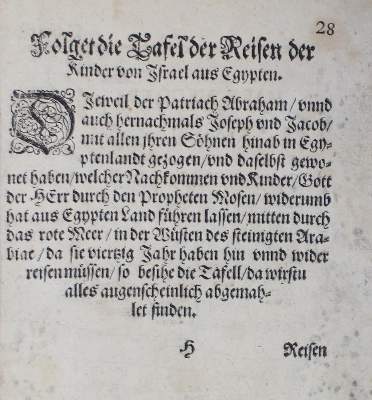 28
Folget die Tafel der Reisen der
Kinder von Israel aus Egypten.
DJeweil der Patriach Abraham / vnnd
auch hernachmals Joseph vnd Jacob /
mit allen jhren Söhnen hinab in Egy-
ptenlandt gezogen / vnd daselbst gewo-
net haben / welcher Nachkommen vnd Kinder / Gott
der HErr durch den Propheten Mosen / widerumb
hat aus Egypten Land führen lassen / mitten durch
das rote Meer / in der Wüsten des steinigten Ara-
biae / da sie viertzig Jahr haben hin vnnd wider
reisen müssen / so besihe die Tafell / da wirstu
alles augenscheinlich abgemah-
let finden.
H Reisen